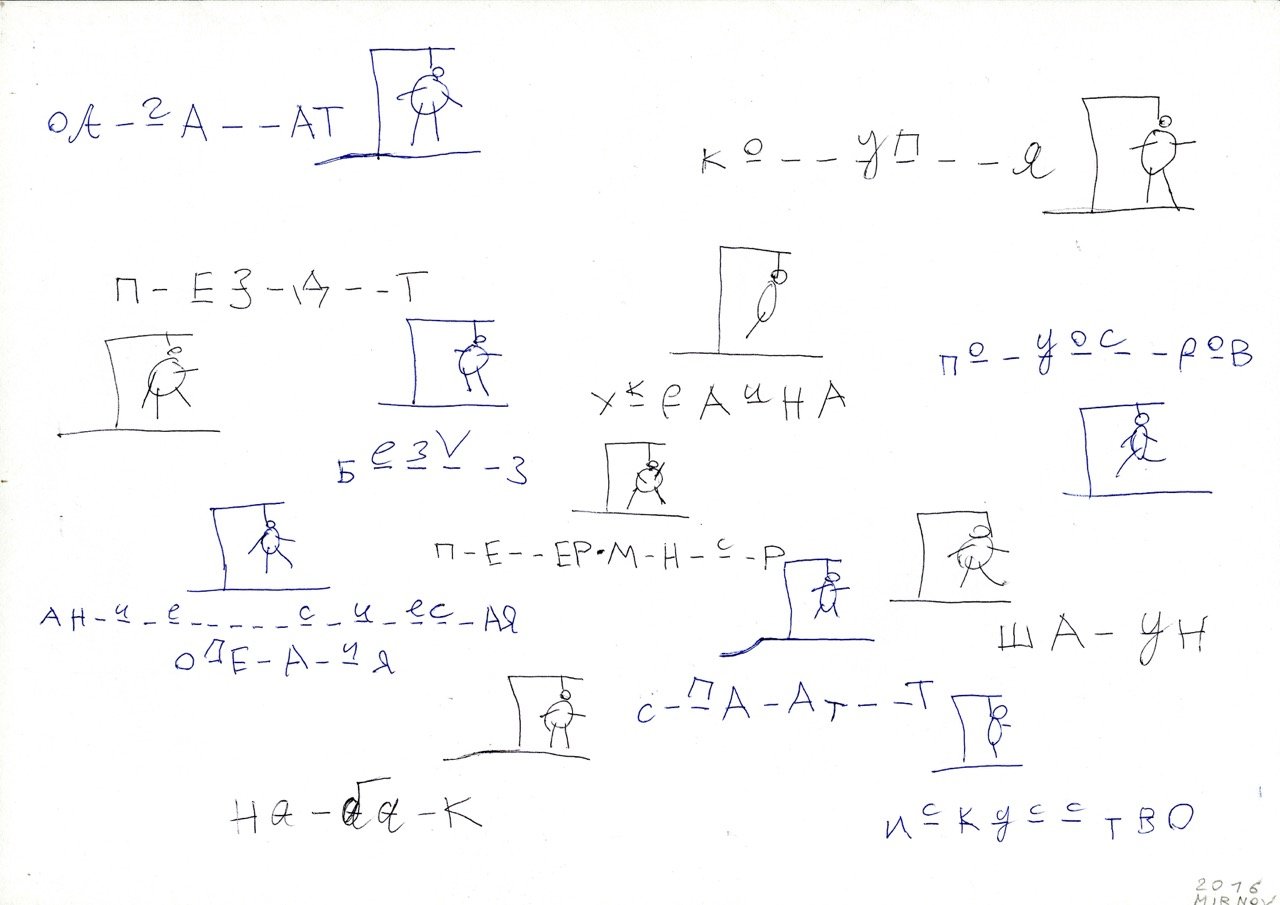 ОА-гА--АТ
КО--УП--Я
П-ЕЗ-Д--Т
ПО-УОС-РОВ
УкрАиНА
БезV-З
П-Е--ЕР•М-Н-с-Р
АН-и-е-----с-и-ес-АЯ
ОПЕ-А-иЯ
ША-УН
С-ПА-АТ--Т
На-га-К
исКусстВО
2016
MIRNOV